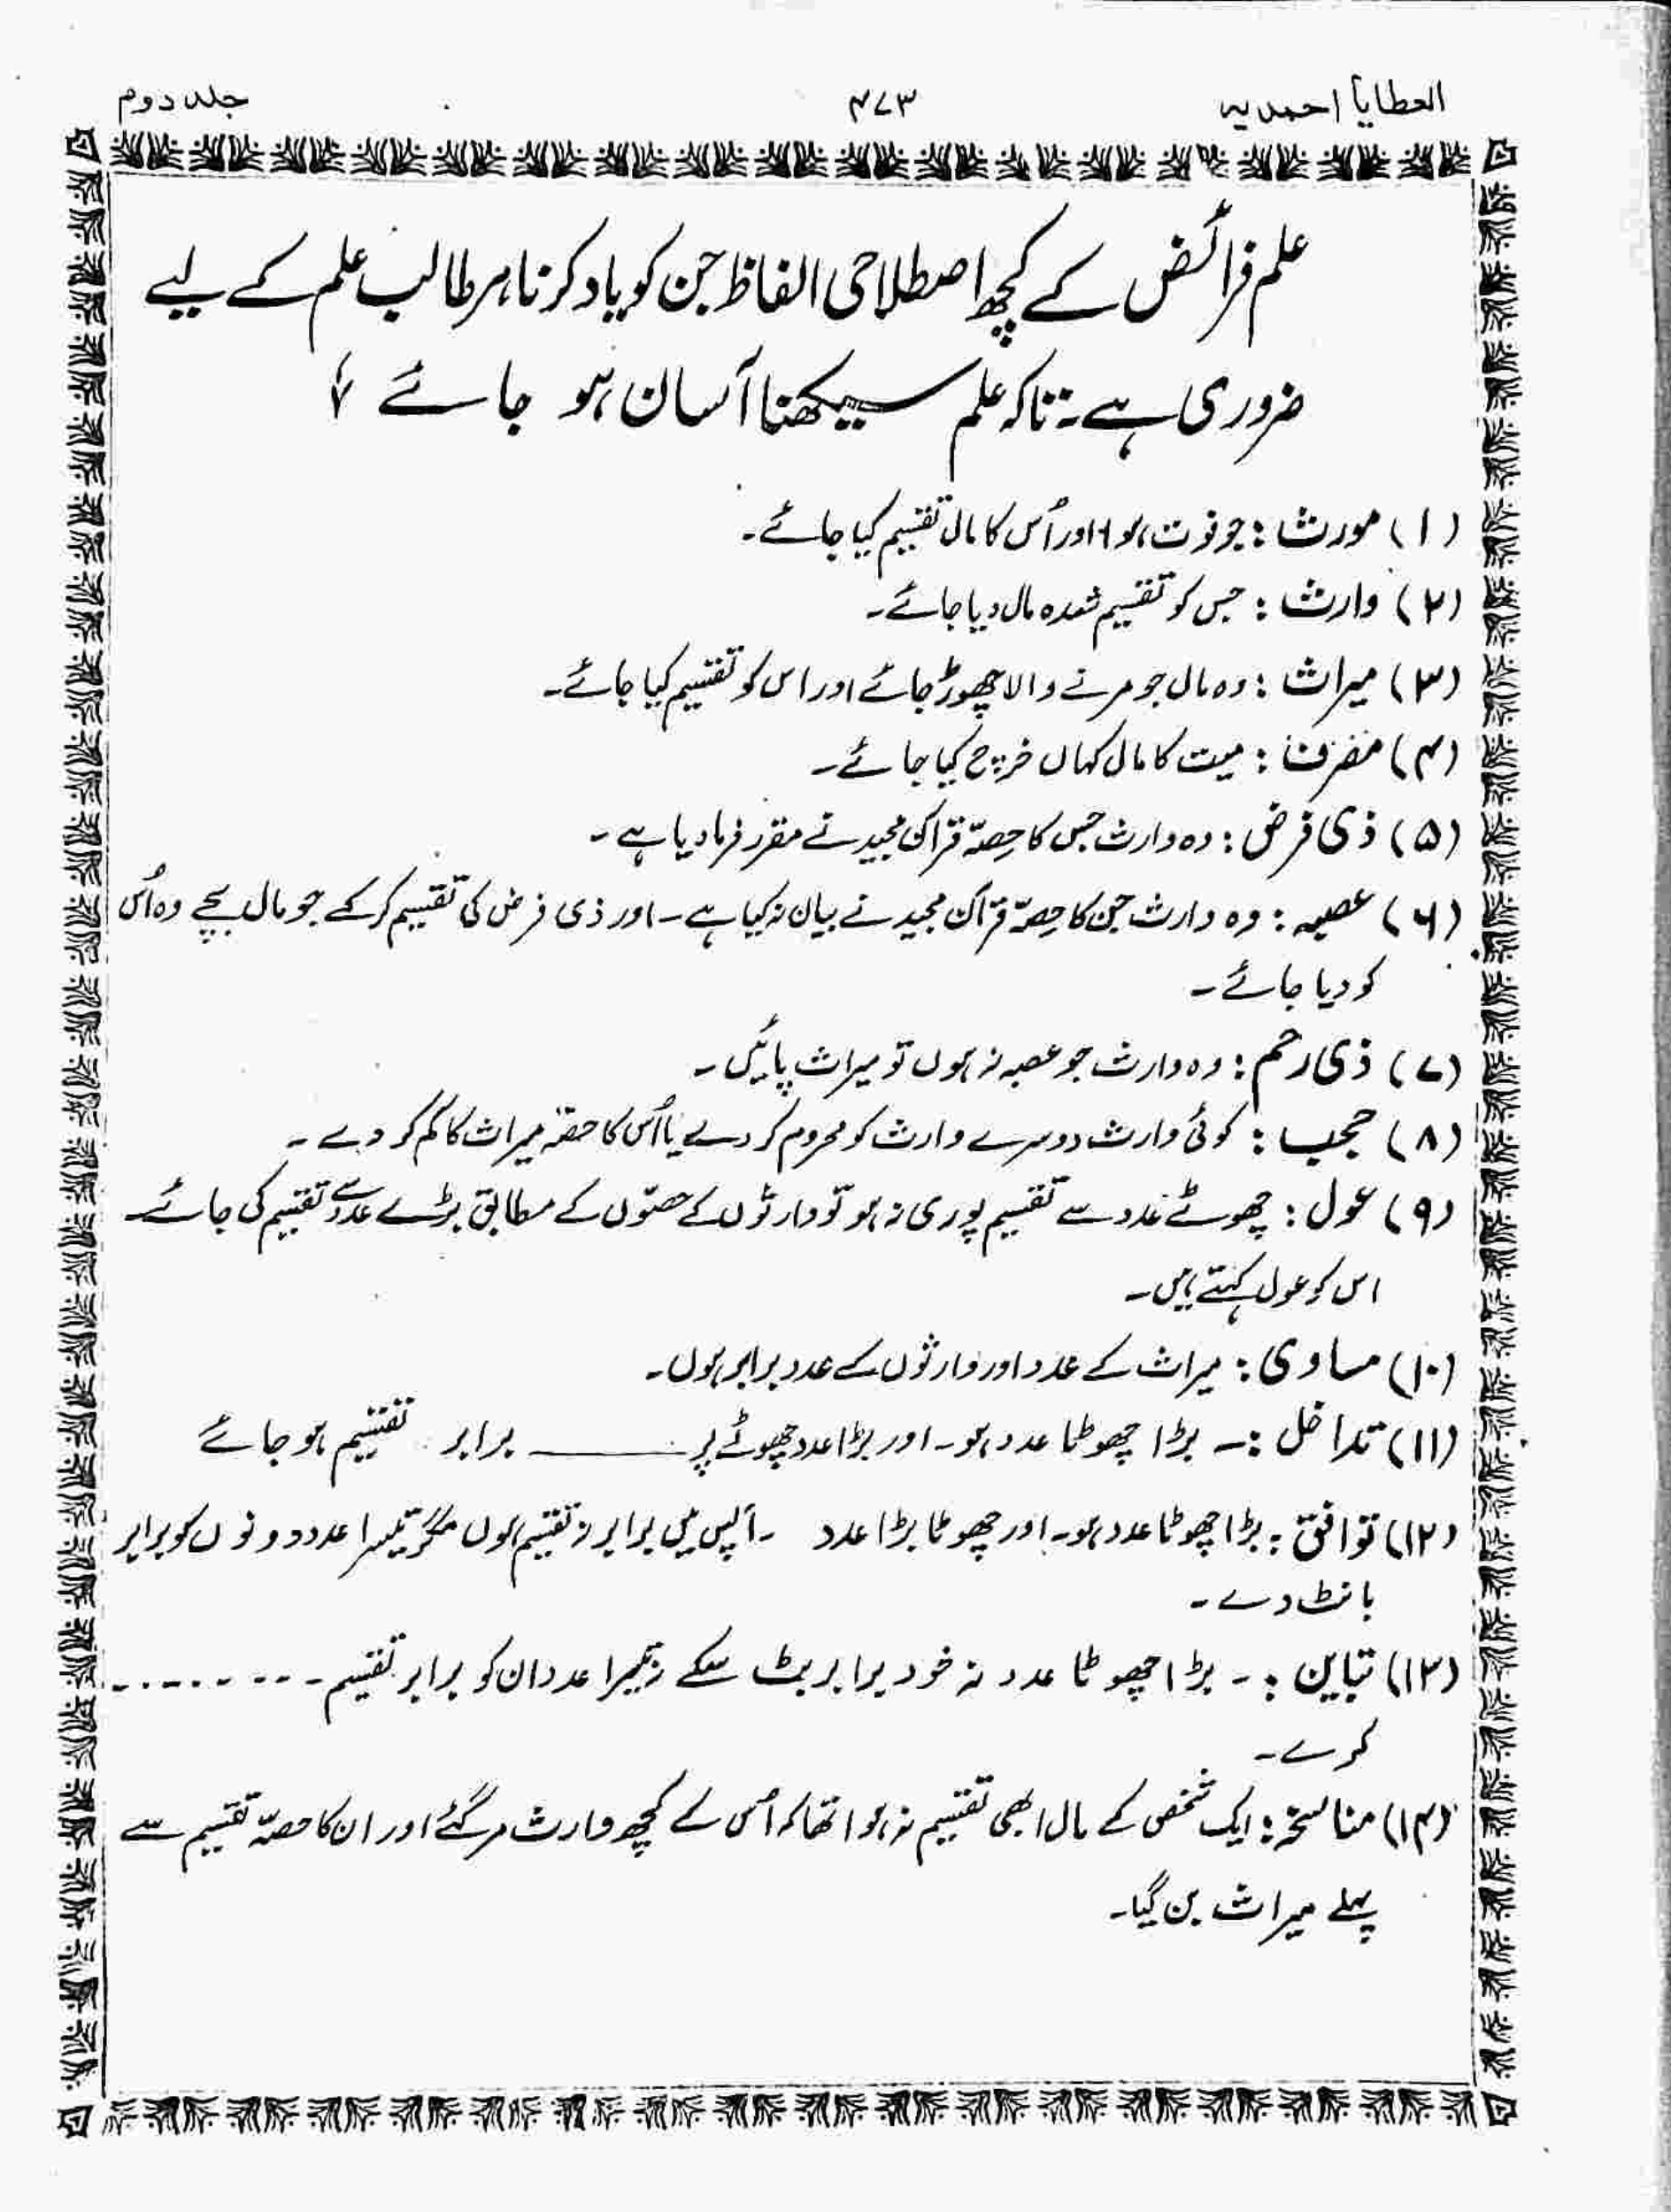 العطایا احمدیہ
۴۷۳
جلد دوم
علم فرائض کے کچھ اصطلاحی الفاظ جن کو یاد کرنا ہر طالب علم کے لیے
ضروری ہے۔ تاکہ علم سیکھنا آسان ہو جائے
(۱) مورث : جو فوت ہوا اور اُس کا مال تقسیم کیا جائے۔
(۲) وارث : جس کو تقسیم شدہ مال دیا جائے۔
(۳) میراث : وہ مال جو مرنے والا چھوڑ جائے اور اس کو تقسیم کیا جائے۔
(۴) مصرف : میت کا مال کہاں خرچ کیا جائے۔
(۵) ذی فرض : وہ وارث جس کا حِصّہ قرآن مجید نے مقرر فرما دیا ہے۔
(۶) عصبہ : وہ وارث جن کا حِصّہ قرآن مجید نے بیان نہ کیا ہے۔ اور ذی فرض کی تقسیم کر کے جو مال بچے وہ اُس
کو دیا جائے۔
(۷) ذی رحم : وہ وارث جو عصبہ نہ ہوں تو میراث پائیں۔
(۸) حجب : کوئی وارث دوسرے وارث کو محروم کر دے یا اُس کا حصّہ میراث کا کم کر دے۔
(۹) عول : چھوٹے عدد سے تقسیم پوری نہ ہو تو وارثوں کے حصّوں کے مطابق بڑے عدد سے تقسیم کی جائے
اس کو عول کہتے ہیں۔
(۱۰) مساوی : میراث کے عدد اور وارثوں کے عدد برابر ہوں۔
(۱۱) تداخل :۔ بڑا چھوٹا عدد ہو۔ اور بڑا عدد چھوٹے پر ــــــــ برابر تقسیم ہو جائے
(۱۲) توافق : بڑا چھوٹا عدد ہو۔ اور چھوٹا بڑا عدد ۔ آپس میں برابر نہ تقسیم ہوں مگر تیسرا عدد دونوں کو برابر
بانٹ دے۔
(۱۳) تباین :۔ بڑا چھوٹا عدد نہ خود برابر بٹ سکے نہ تیسرا عدد ان کو برابر تقسیم۔ - - - - - - -
کرے۔
(۱۴) مناسخہ : ایک شخص کے مال ابھی تقسیم نہ ہوا تھا کہ اُس کے کچھ وارث مر گئے اور ان کا حصّہ تقسیم سے
پہلے میراث بن گیا۔